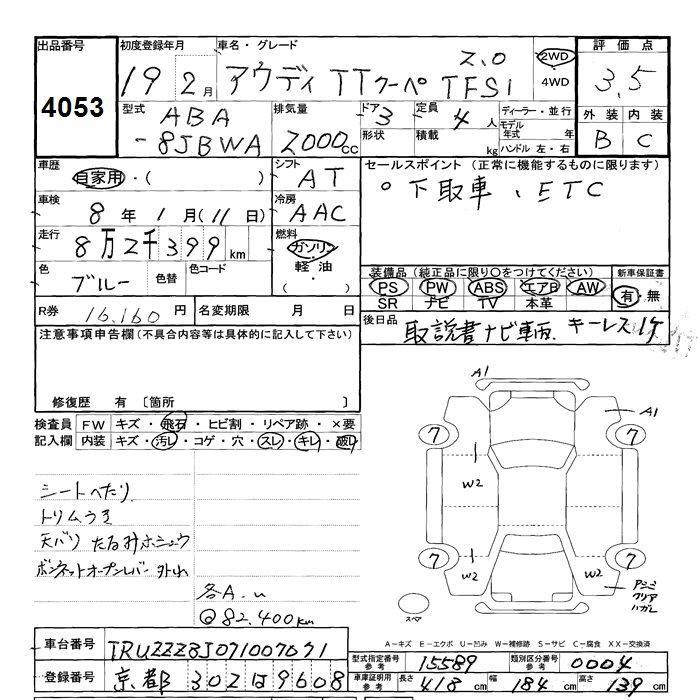 出品番号
4053
初度登録年月
19 2月
車名・グレード
アウディ TTクーペ 2.0 TFSI
2WD
4WD
評価点
3.5
外装 内装
B C
型式
ABA
-8JBWA
排気量
2000cc
ドア
3
形状
定員
4人
積載
kg
ディーラー・並行
モデル
年式 年
ハンドル 左・右
車歴
自家用・( )
シフト
AT
車検
8年1月(11日)
冷房
AAC
走行
8万2千399km
燃料
ガソリン
軽油
( ・ )
色
ブルー
色替
色コード
セールスポイント(正常に機能するものに限ります)
○下取車、ETC
装備品(純正品に限り○をつけてください)
PS PW ABS エアB AW
SR ナビ TV 本革
新車保証書
有・無
R券
16,160円
名変期限 月 日
後日品
取説書ナビ車両 キーレス1ケ
注意事項申告欄(不具合内容等は具体的に記入して下さい)
修復歴 有〔箇所 〕
検査員
記入欄
FW キズ・飛石・ヒビ割・リペア跡・×要
内装 キズ・汚レ・コゲ・穴・スレ・キレ・破レ
シートへたり
トリムうき
天バリ たるみホシュウ
ボンネットオープンレバー外れ
各A.u
@82,400km
A1
A1
7
7
7
7
W2
W2
W2
アンコ
クリア
ハガレ
スペア
A-キズ E-エクボ U-凹み W-補修跡 S-サビ C-腐食 XX-交換済
車台番号
TRUZZZ8J071007631
登録番号
京都302は9608
型式指定番号
参考
15589
類別区分番号
参考
0004
車庫証明用
参考
長さ
418cm
幅
184cm
高さ
139cm